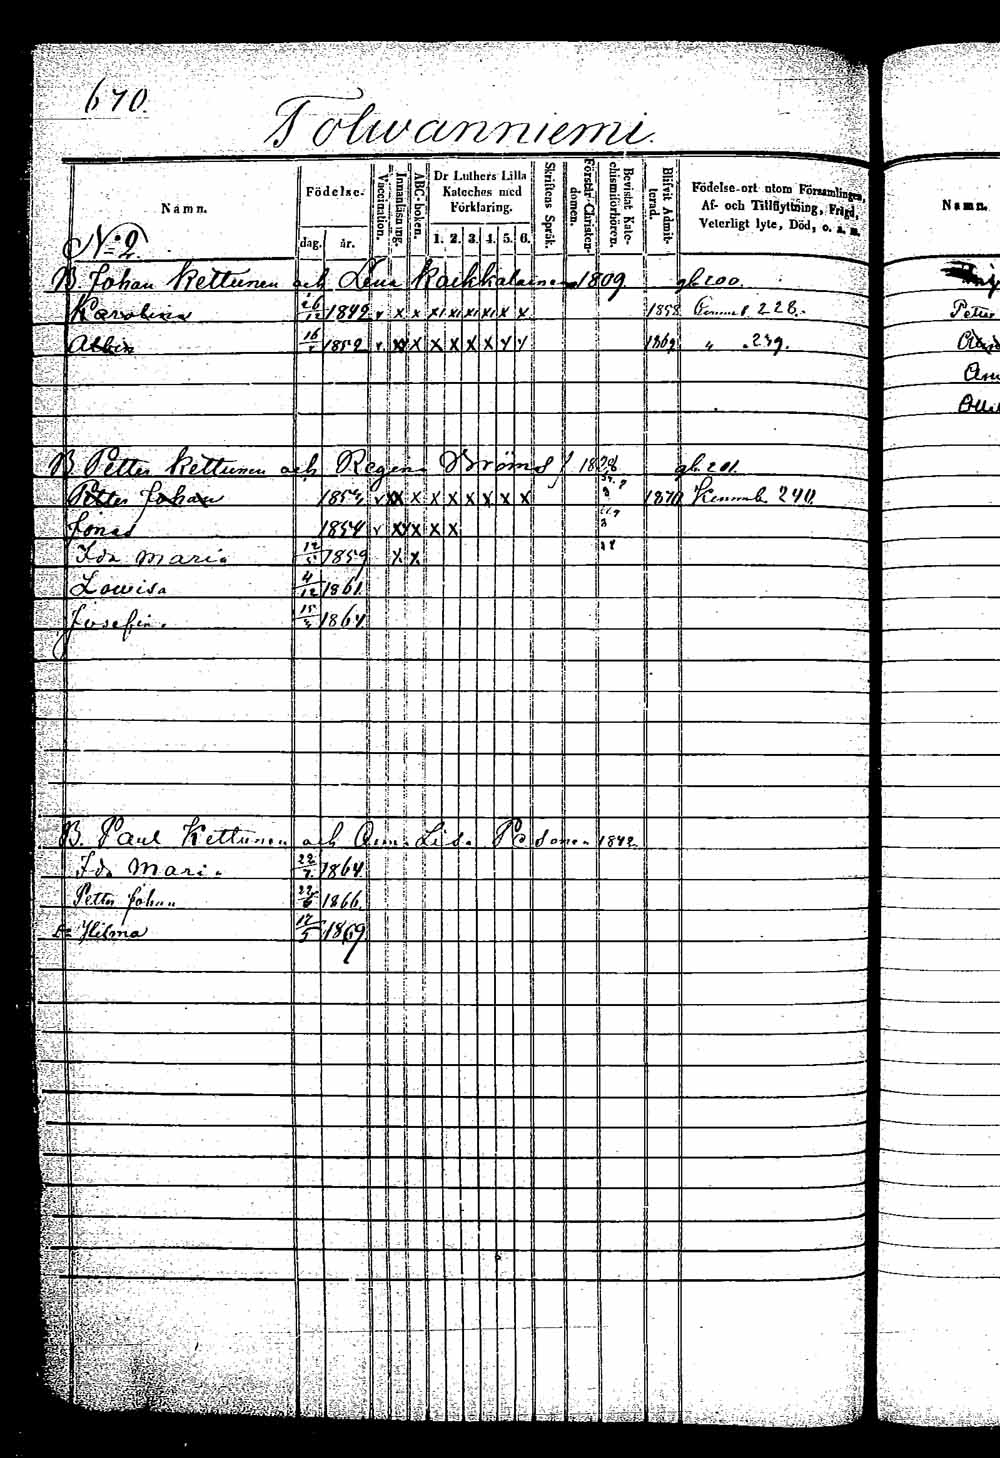 670.
Tolwanniemi.
Namn.
Födelse-
dag. år.
Vaccination.
Innanläsning.
ABC-boken.
Dr Luthers Lilla Kateches med Förklaring.
1. 2. 3. 4. 5. 6.
Skriftens Språk.
Förstår Christendomen.
Bevistat Katechismiförhören.
Blifvit Admitterad.
Födelse-ort utom Församlingen, Af- och Tillflyttning, Frägd, Veterligt lyte, Död, o. s. v.
Namn.
No 2
B. Johan Kettunen och Lena 1809 gb. 200.
Karolina 26/12 1842 v x x x x x x x x 1858 228.
Albin 16 1852 v x x x x x x x x 1869 " 239.
B. Petter Kettunen och Regina 1828 gb. 201.
Petter Johan 1852 v x x x x x x x x 1870 Kommb. 240
Jonas 1854 v x x x x
Ida Maria 12/5 1859 x x
Lowisa 4/12 1861.
Josefin. 15 1864
B. Paul Kettunen och Lisa 1842
Ida Maria 22/7 1864.
Petter Johan 22 1866.
Hilma 12/5 1869.
Petter